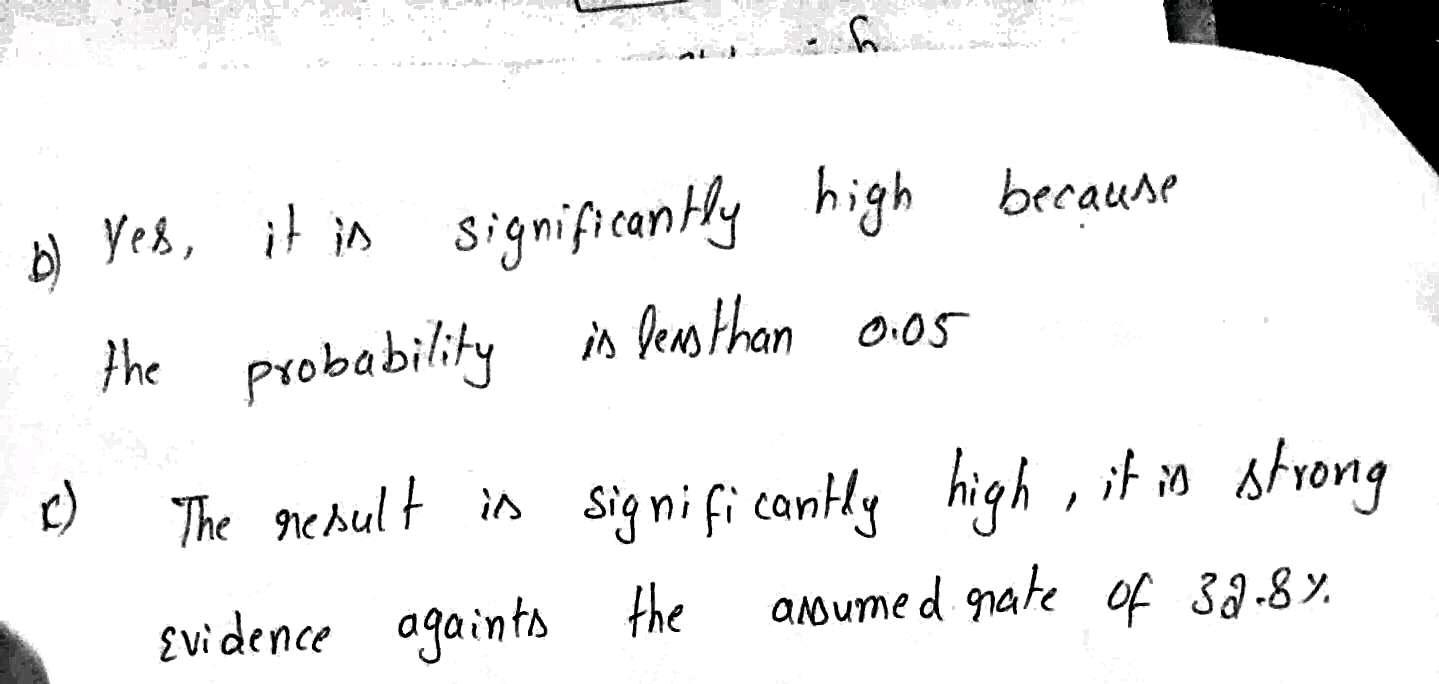 b) Yes, it is significantly high because
the probability is less than 0.05
c) The result is significantly high, it is strong
evidence againts the assumed rate of 32.8%